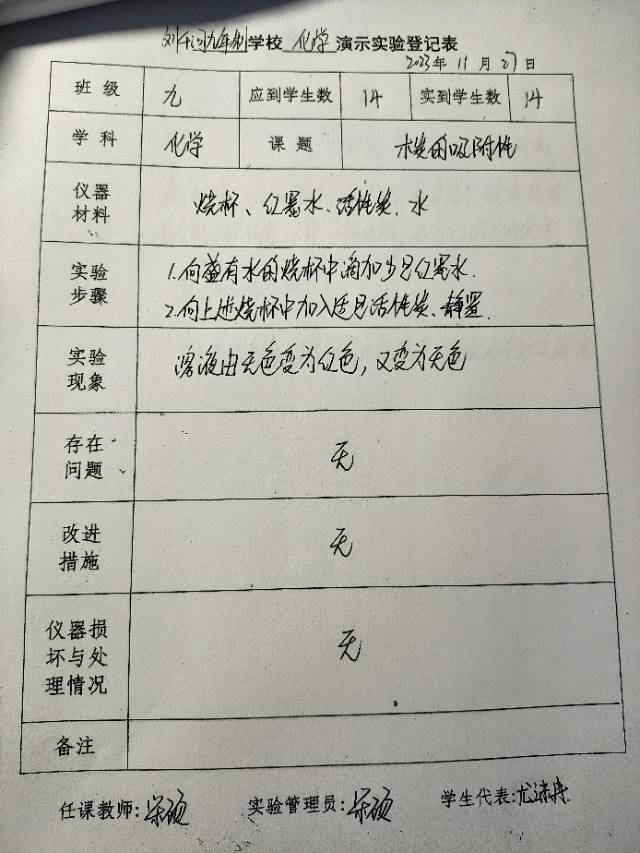 刘千河九年制学校 化学 演示实验登记表
2023年 11月 27日
班级 九 应到学生数 14 实到学生数 14
学科 化学 课题 木炭的吸附性
仪器材料 烧杯、红墨水、活性炭、水
实验步骤 1.向盛有水的烧杯中滴加少量红墨水.
2.向上述烧杯中加入适量活性炭、静置.
实验现象 溶液由无色变为红色,又变为无色
存在问题 无
改进措施 无
仪器损坏与处理情况 无
备注
任课教师: 实验管理员: 学生代表: